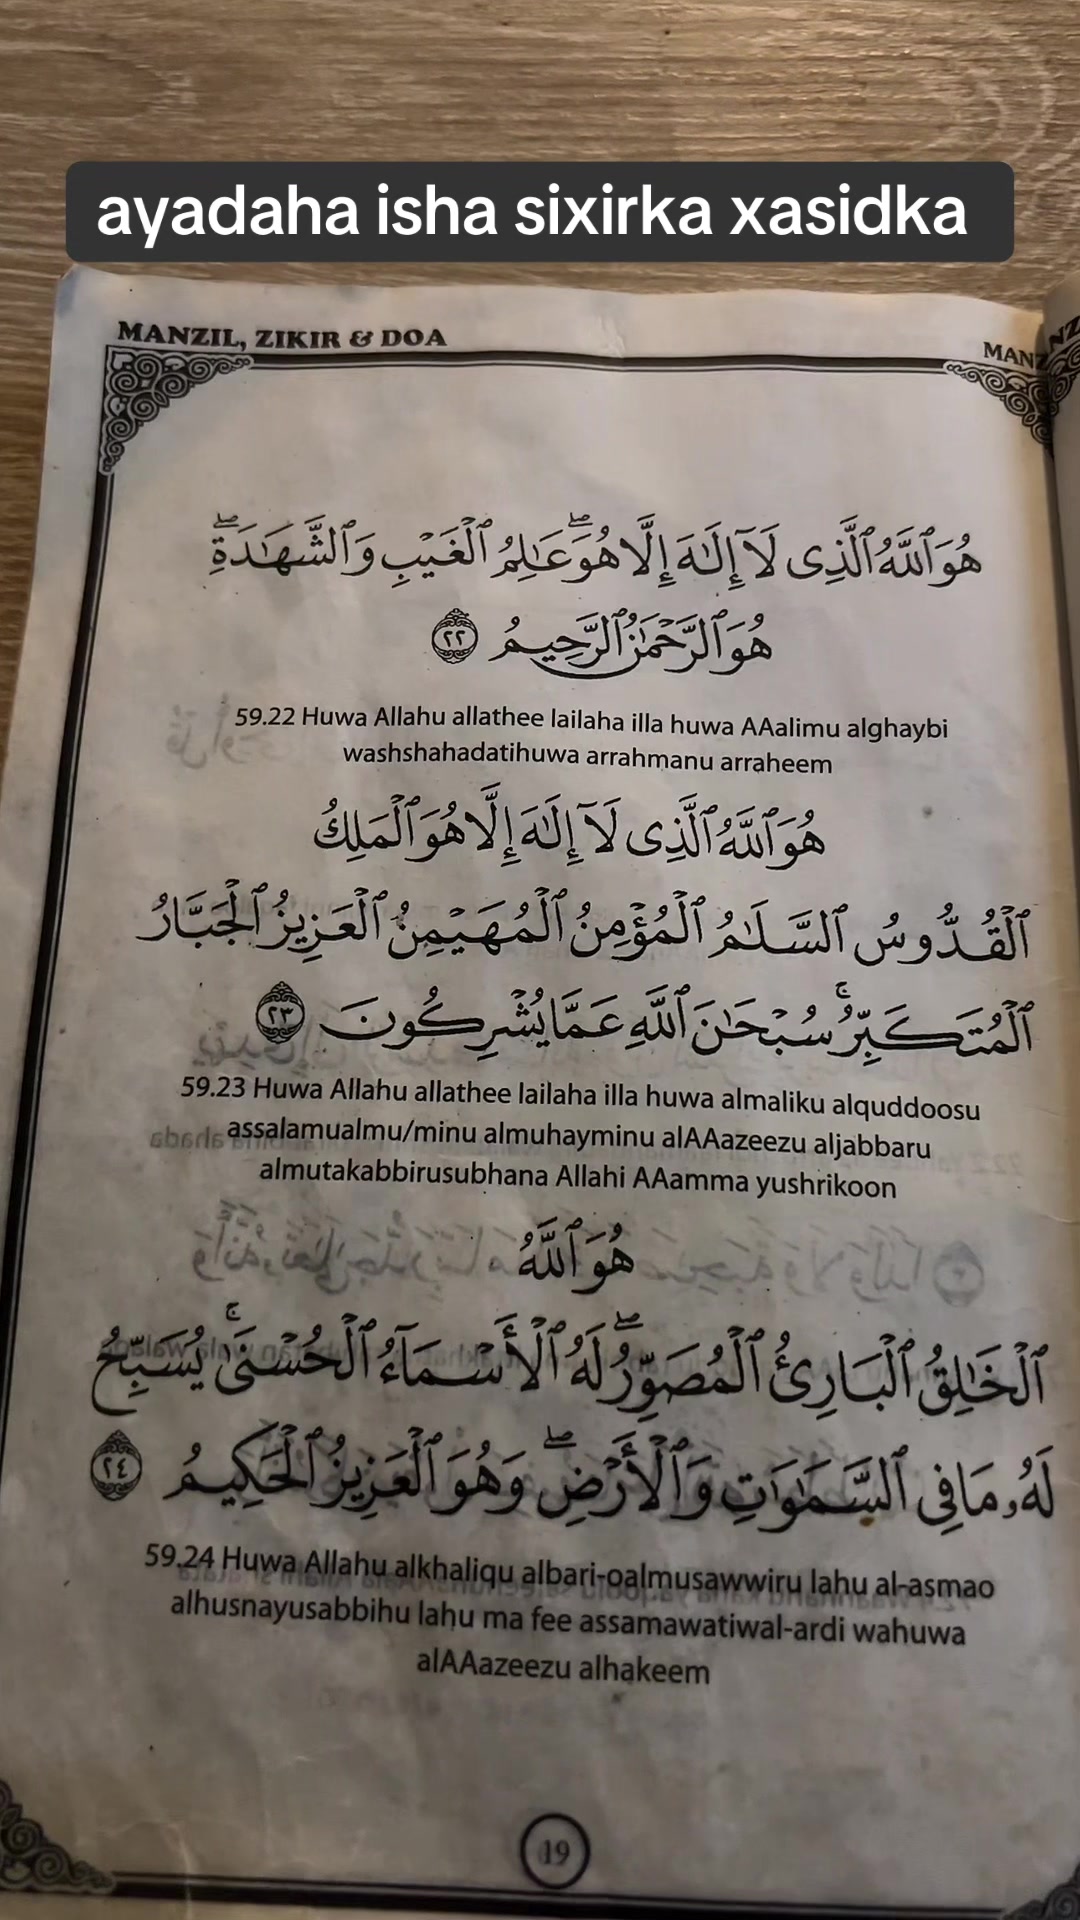 ayadaha isha sixirka xasidka
MANZIL, ZIKIR & DOA
MANZ
هُوَ ٱللَّهُ ٱلَّذِى لَآ إِلَـٰهَ إِلَّا هُوَ ۖ عَـٰلِمُ ٱلْغَيْبِ وَٱلشَّهَـٰدَةِ ۖ
هُوَ ٱلرَّحْمَـٰنُ ٱلرَّحِيمُ ٢٢
59.22 Huwa Allahu allathee lailaha illa huwa AAalimu alghaybi
washshahadatihuwa arrahmanu arraheem
هُوَ ٱللَّهُ ٱلَّذِى لَآ إِلَـٰهَ إِلَّا هُوَ ٱلْمَلِكُ
ٱلْقُدُّوسُ ٱلسَّلَـٰمُ ٱلْمُؤْمِنُ ٱلْمُهَيْمِنُ ٱلْعَزِيزُ ٱلْجَبَّارُ
ٱلْمُتَكَبِّرُ ۚ سُبْحَـٰنَ ٱللَّهِ عَمَّا يُشْرِكُونَ ٢٣
59.23 Huwa Allahu allathee lailaha illa huwa almaliku alquddoosu
assalamualmu/minu almuhayminu alAAazeezu aljabbaru
almutakabbirusubhana Allahi AAamma yushrikoon
هُوَ ٱللَّهُ
ٱلْخَـٰلِقُ ٱلْبَارِئُ ٱلْمُصَوِّرُ ۖ لَهُ ٱلْأَسْمَآءُ ٱلْحُسْنَىٰ ۚ يُسَبِّحُ
لَهُۥ مَا فِى ٱلسَّمَـٰوَٰتِ وَٱلْأَرْضِ ۖ وَهُوَ ٱلْعَزِيزُ ٱلْحَكِيمُ ٢٤
59.24 Huwa Allahu alkhaliqu albari-oalmusawwiru lahu al-asmao
alhusnayusabbihu lahu ma fee assamawatiwal-ardi wahuwa
alAAazeezu alhakeem
19